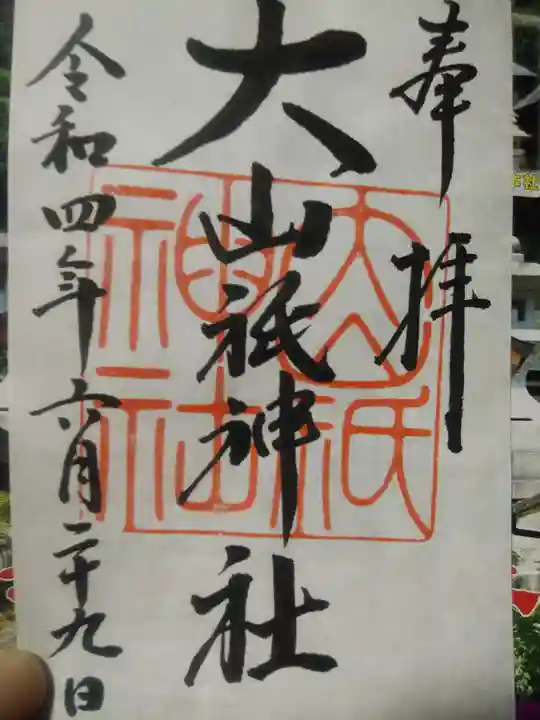 奉拝
大山祇神社
大山祇
神社
令和四年六月二十九日